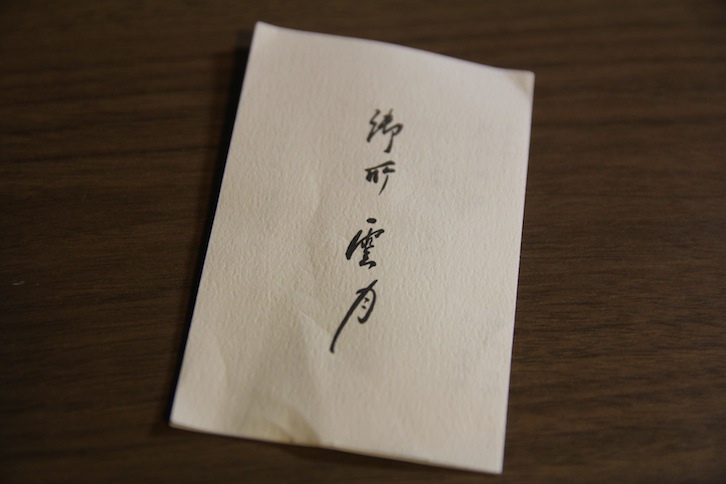 御所 雲月